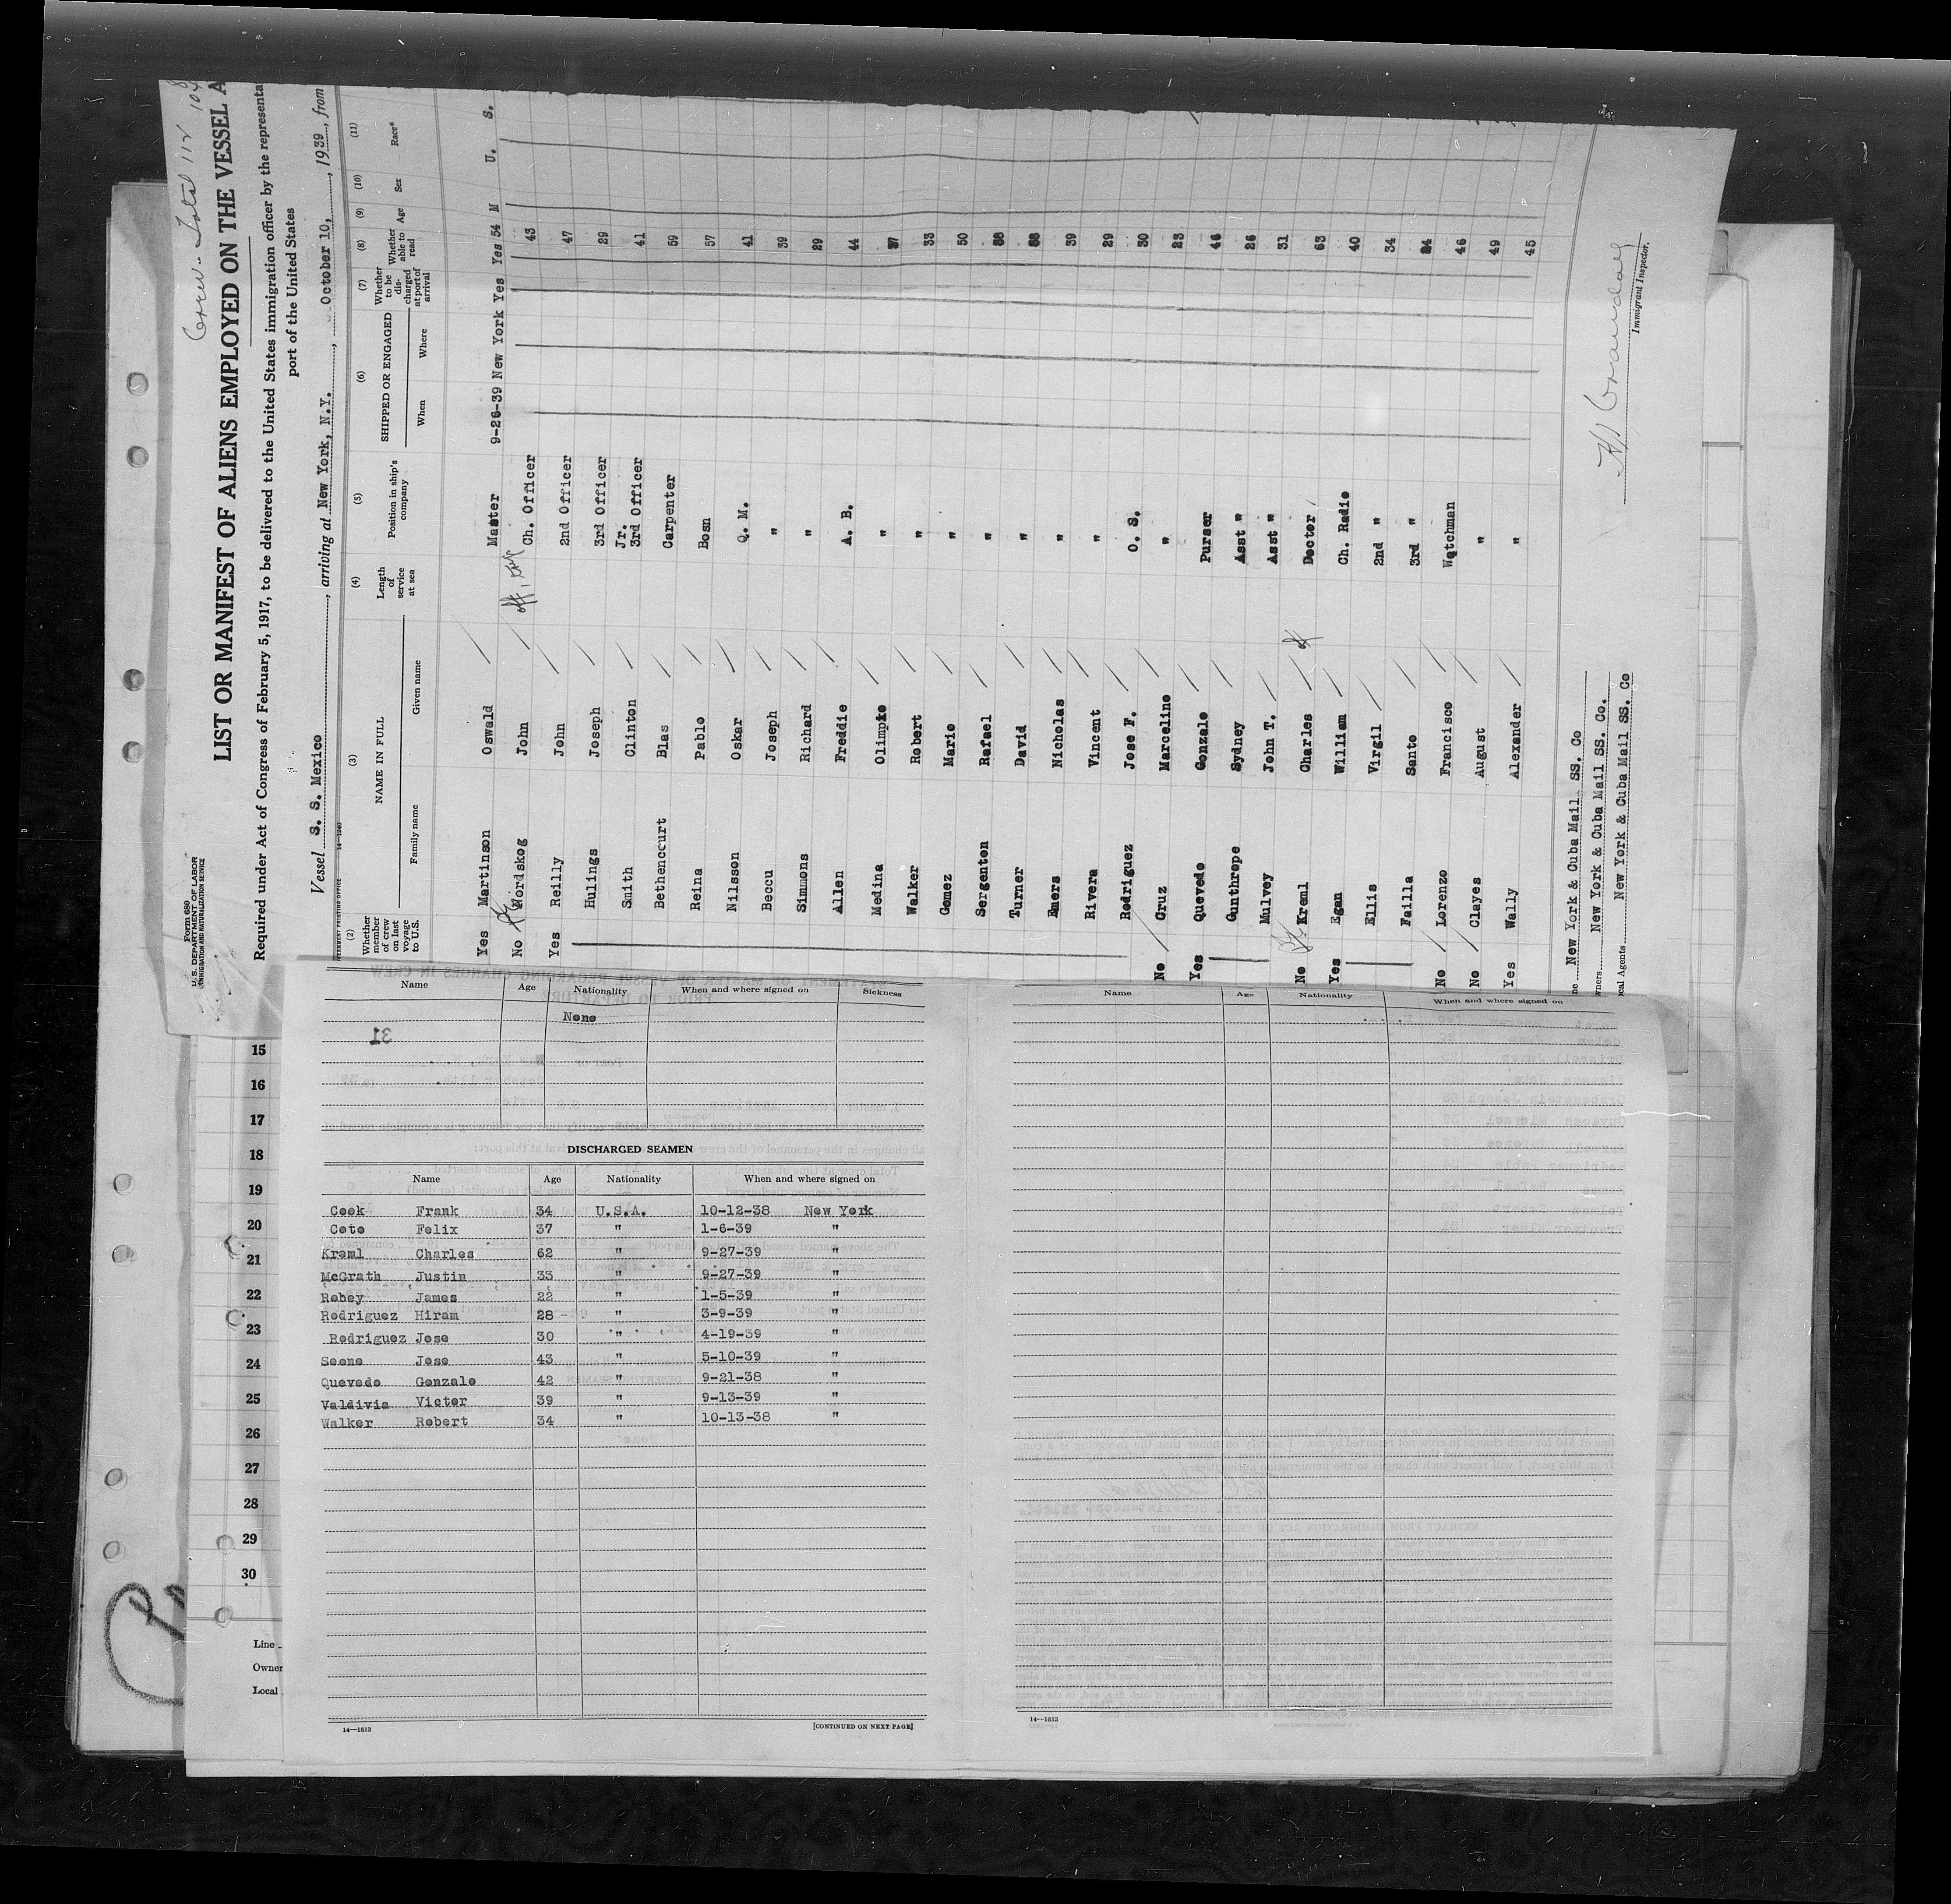 Crew - Total 112
LIST OR MANIFEST OF ALIENS EMPLOYED ON THE VESSEL A
Required under Act of Congress of February 5, 1917, to be delivered to the United States immigration officer by the representa
port of the United States
Form 680
U. S. DEPARTMENT OF LABOR
IMMIGRATION AND NATURALIZATION SERVICE
Vessel S. S. Mexico, arriving at New York, N.Y., October 10, 1939, from
(2) (3) (4) (5) (6) (7) (8) (9) (10) (11)
Whether member of crew on last voyage to U.S. NAME IN FULL Family name Given name Length of service at sea Position in ship's company SHIPPED OR ENGAGED When Where Whether to be discharged at port of arrival Whether able to read Age Sex Race*
Yes Martinson Oswald Master 9-26-39 New York Yes Yes 54 M U. S.
No Nordskog John Ch. Officer 43
Yes Reilly John 2nd Officer 47
Hulings Joseph 3rd Officer 29
Smith Clinton Jr. 3rd Officer 41
Bethencourt Blas Carpenter 59
Reina Pablo Bosn 57
Nilsson Oskar Q. M. 41
Beccu Joseph " 39
Simmons Richard " 29
Allen Freddie A. B. 44
Medina Olimpio " 37
Walker Robert " 33
Gomez Mario " 50
Sergenton Rafael "
Turner David "
Emers Nicholas " 39
Rivera Vincent " 29
Rodriguez Jose F. O. S. 30
No Cruz Marcelino " 23
Yes Quevedo Gonzalo Purser 46
Gunthrope Sydney Asst " 26
Mulvey John T. Asst " 31
No Kreml Charles Doctor 63
Yes Egan William Ch. Radio 40
Ellis Virgil 2nd " 34
Failla Santo 3rd " 24
No Lorenzo Francisco Watchman 46
No Clayes August " 49
Yes Wally Alexander " 45
New York & Cuba Mail SS. Co
New York & Cuba Mail SS. Co.
Agents New York & Cuba Mail SS. Co
Immigrant Inspector.
Name Age Nationality When and where signed on Sickness
None
DISCHARGED SEAMEN
Name Age Nationality When and where signed on
Cook Frank 34 U.S.A. 10-12-38 New York
Coto Felix 37 " 1-6-39 "
Kreml Charles 62 " 9-27-39 "
McGrath Justin 33 " 9-27-39 "
Robey James 22 " 1-5-39 "
Rodriguez Hiram 28 " 3-9-39 "
Rodriguez Jose 30 " 4-19-39 "
Seone Jose 43 " 5-10-39 "
Quevedo Gonzalo 42 " 9-21-38 "
Valdivia Victor 39 " 9-13-39 "
Walker Robert 34 " 10-13-38 "
14—1613 [CONTINUED ON NEXT PAGE]
Name Age Nationality When and where signed on
14—1613
15
16
17
18
19
20
21
22
23
24
25
26
27
28
29
30
Line
Owner
Local